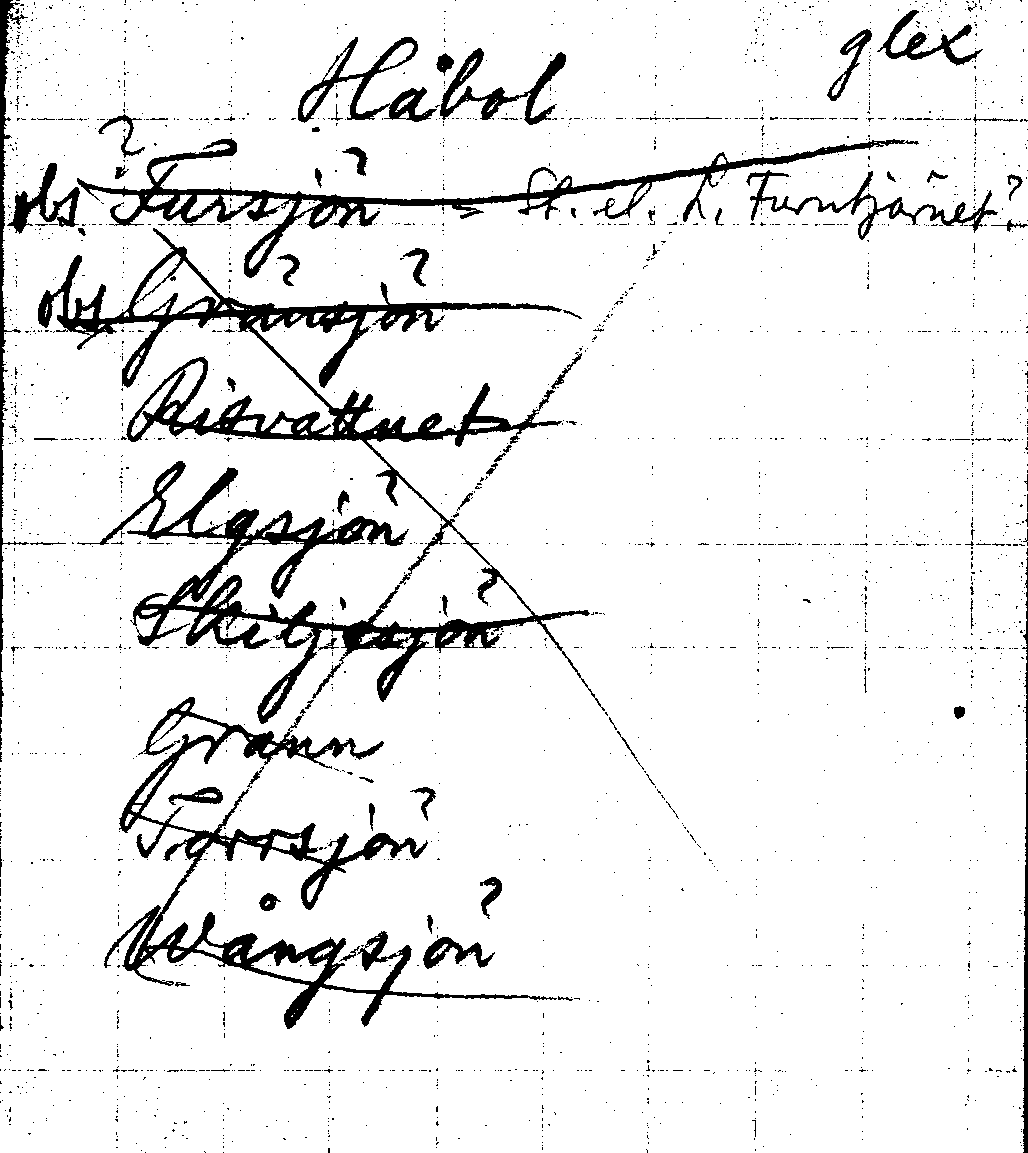 glex
Håbol
?
obs. Fursjön = St. el. L. Furutjärnet?
obs. Gränsjön
Risvattnet
Elgsjön
Skiljesjön
Grann
Torrsjön
Wångsjön